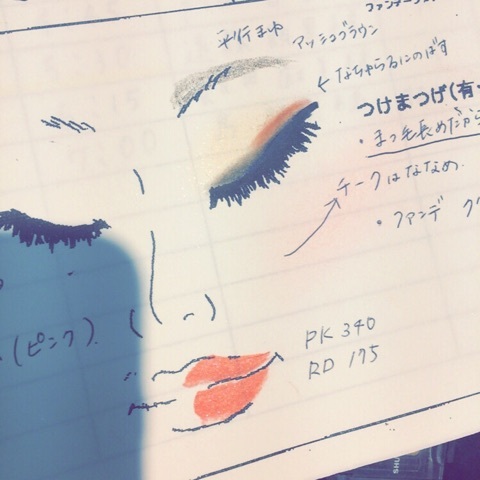 ファンデーシ
平行まゆ
アッシュブラウン
←なちゅらるにのばす
つけまつげ(有・
・まつ毛長めだから
チークはななめ.
・ファンデ
(ピンク).
PK 340
RD 175
SHU